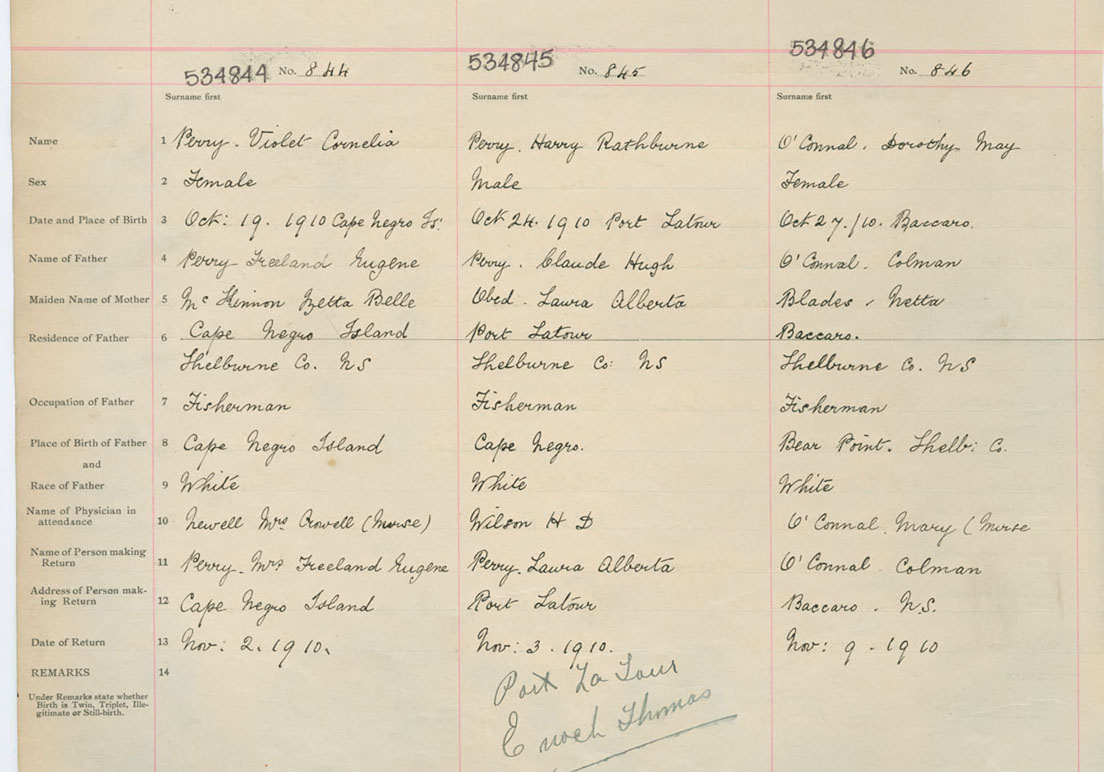 534844 No. 844 534845 No. 845 534846 No. 846
Surname first Surname first Surname first
Name 1 Perry. Violet Cornelia Perry. Harry Rathburne O'Connal. Dorothy May
Sex 2 Female Male Female
Date and Place of Birth 3 Oct: 19. 1910 Cape Negro Is. Oct 24. 1910 Port Latour Oct 27./10. Baccaro.
Name of Father 4 Perry Freeland Eugene Perry. Claude Hugh O'Connal. Colman
Maiden Name of Mother 5 McKinnon Zetta Belle Obed. Laura Alberta Blades, Netta
Residence of Father 6 Cape Negro Island Port Latour Baccaro.
Shelburne Co. NS Shelburne Co: NS Shelburne Co. NS
Occupation of Father 7 Fisherman Fisherman Fisherman
Place of Birth of Father 8 Cape Negro Island Cape Negro. Bear Point. Shelb: Co.
and
Race of Father 9 White White White
Name of Physician in
attendance 10 Newell Mrs Crowell (Nurse) Wilson H D O'Connal. Mary (Nurse
Name of Person making
Return 11 Perry. Mrs Freeland Eugene Perry. Laura Alberta O'Connal. Colman
Address of Person mak-
ing Return 12 Cape Negro Island Port Latour Baccaro. N.S.
Date of Return 13 Nov: 2. 1910. Nov: 3. 1910. Nov: 9. 1910
REMARKS 14
Under Remarks state whether
Birth is Twin, Triplet, Ille-
gitimate or Still-birth.
Port La Tour
Enoch Thomas